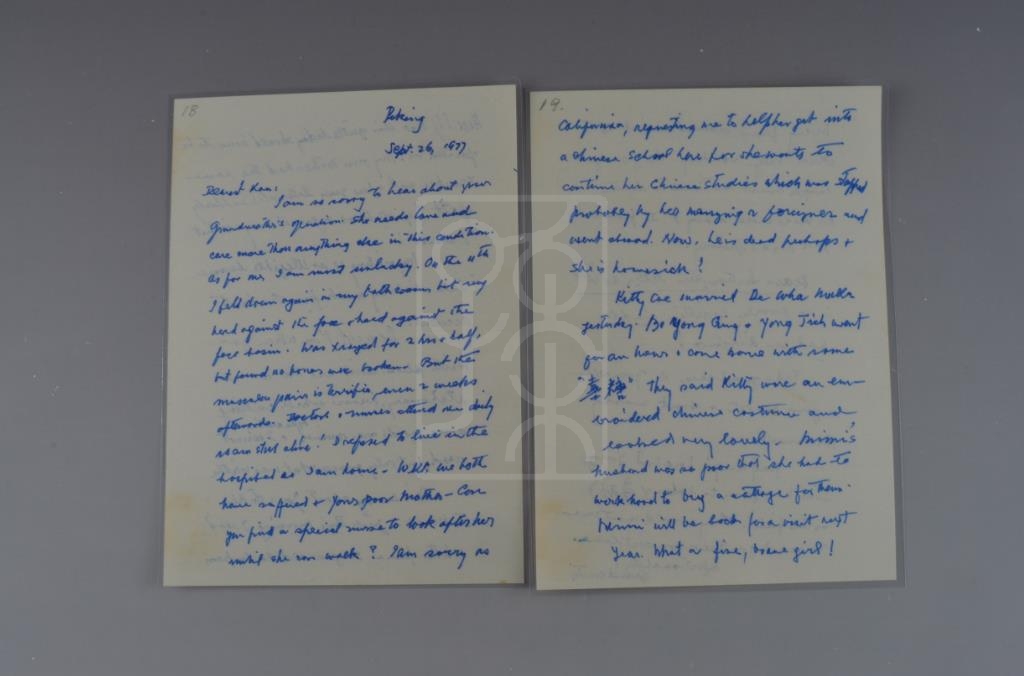 18
Peking
Sept. 26, 1977
Dearest Kan:
I am so sorry to hear about your
Grandmother's operation. She needs love and
care more than anything else in this condition.
As for me, I am most unlucky. On the 11th
I fell down again in my bathroom hit my
head against the face
face basin. Was xrayed for 2 hrs & half,
but found no bones were broken. But the
muscular pain is terrific, even 2 weeks
afterwards. Doctors & nurses attend me daily
I refused to live in the
hospital as I am home. we both
have suffered & your poor mother - Can
you find a special nurse to look after her
until she can walk? I am sorry as
19.
California, requesting me to help her get into
a Chinese School here for she wants to
continue her Chinese studies which was stopped
probably by her marrying a foreigner and
went abroad. Now, he is dead perhaps &
she is homesick!
Kitty married
yesterday. & Yong went
for an hour & come home with some
"喜糖" They said Kitty wore an em-
broidered Chinese costume and
looked very lovely. Mimi's
husband was so poor that she had to
work hard to buy a cottage for them.
Mimi will be back for a visit next
year. What a fine, brave girl!